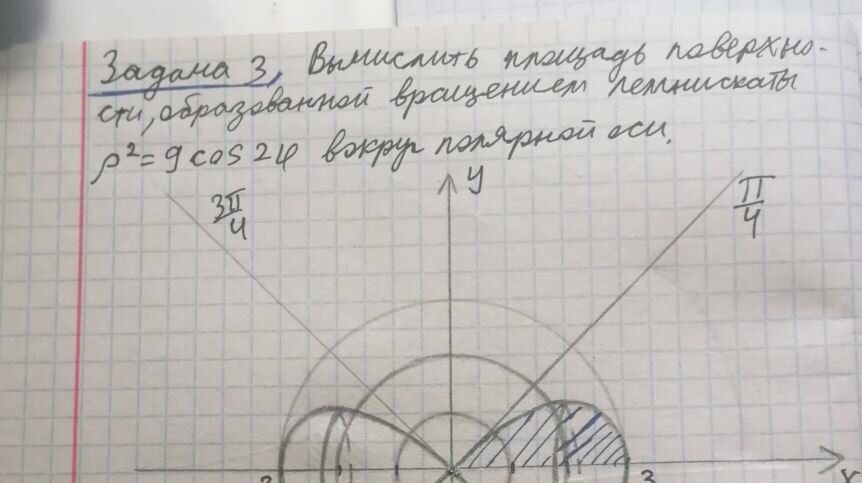 Задача 3. Вычислить площадь поверхно-
сти, образованной вращением лемнискаты
ρ² = 9 cos 2φ вокруг полярной оси.
y
3π/4
π/4
3
x